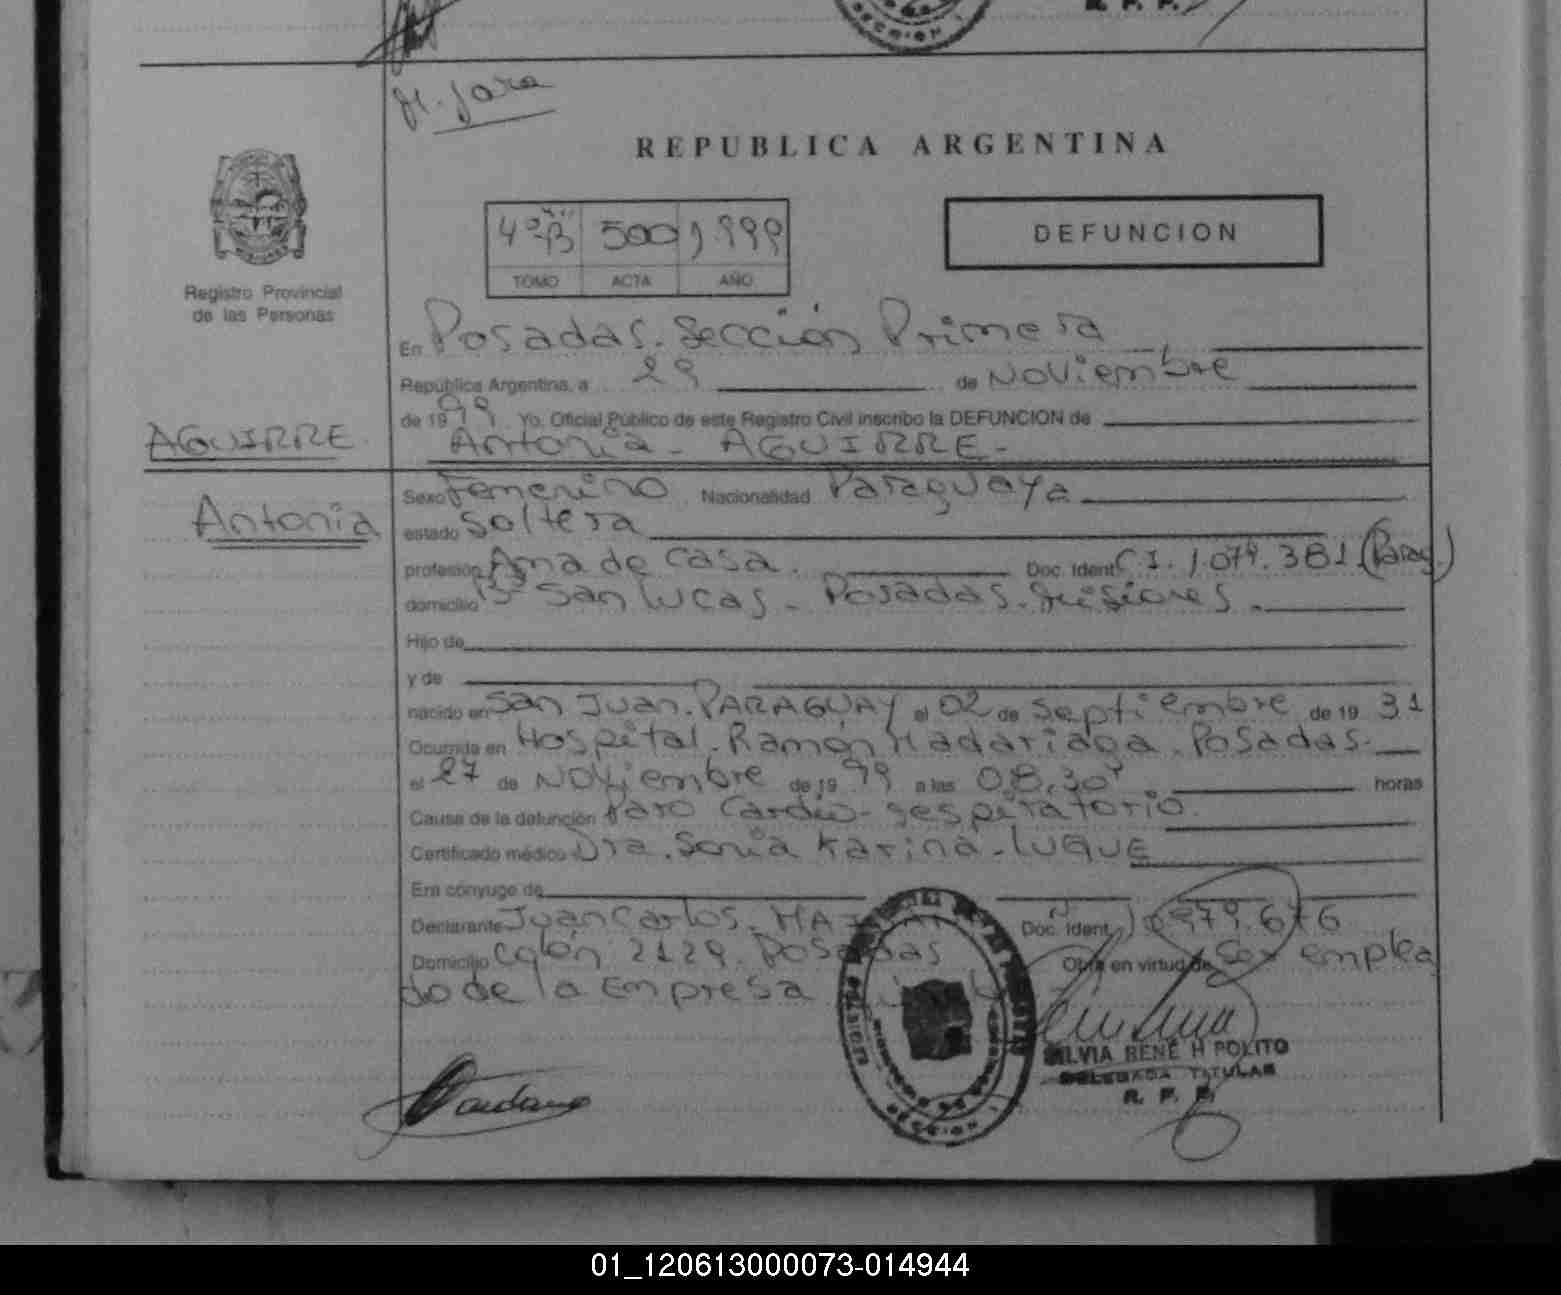 SECCION 1
R. P. P.
M. Jara
REPUBLICA ARGENTINA
4º B 500 1.999
TOMO ACTA AÑO
DEFUNCION
Registro Provincial
de las Personas
En Posadas. Sección Primera
República Argentina, a 29 de Noviembre
de 1999 Yo. Oficial Público de este Registro Civil inscribo la DEFUNCION de
AGUIRRE. Antonia - AGUIRRE -
Sexo Femenino Nacionalidad Paraguaya
Antonia
estado Soltera
profesión Ama de casa. Doc. Ident C.I. 1.074.381 (Parag.)
domicilio Bº San Lucas - Posadas. Misiones.
Hijo de
y de
nacido en San Juan. PARAGUAY el 02 de Septiembre de 19 31
Ocurrida en Hospital. Ramón Madariaga. Posadas.
el 27 de Noviembre de 19 99 a las 08,30 horas
Causa de la defunción Paro Cardio-respiratorio.
Certificado médico Dra. Sonia Karina - LUQUE
Era cónyuge de
Declarante Juan Carlos. Doc. Ident.
Domicilio Colón 2129. Posadas Obra en virtud de Ser emplea
do de la Empresa
SILVIA RENÉ H POLITO
DELEGADA TITULAR
R. P. P.
SECCION 1
01_120613000073-014944